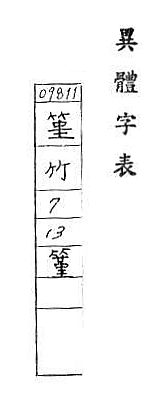 異體字表
09811
竹
7
13